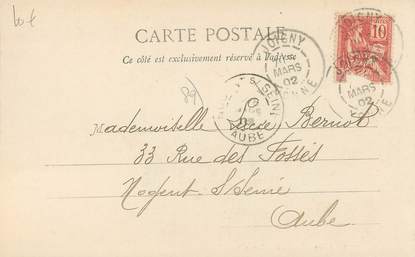 CARTE POSTALE
Ce côté est exclusivement réservé à l'adresse
10
JOIGNY
MARS
02
YONNE
JOIGNY
MARS
02
AUBE
Mademoiselle Bernot
33 Rue des Fossés
Nogent S/Seine
Aube